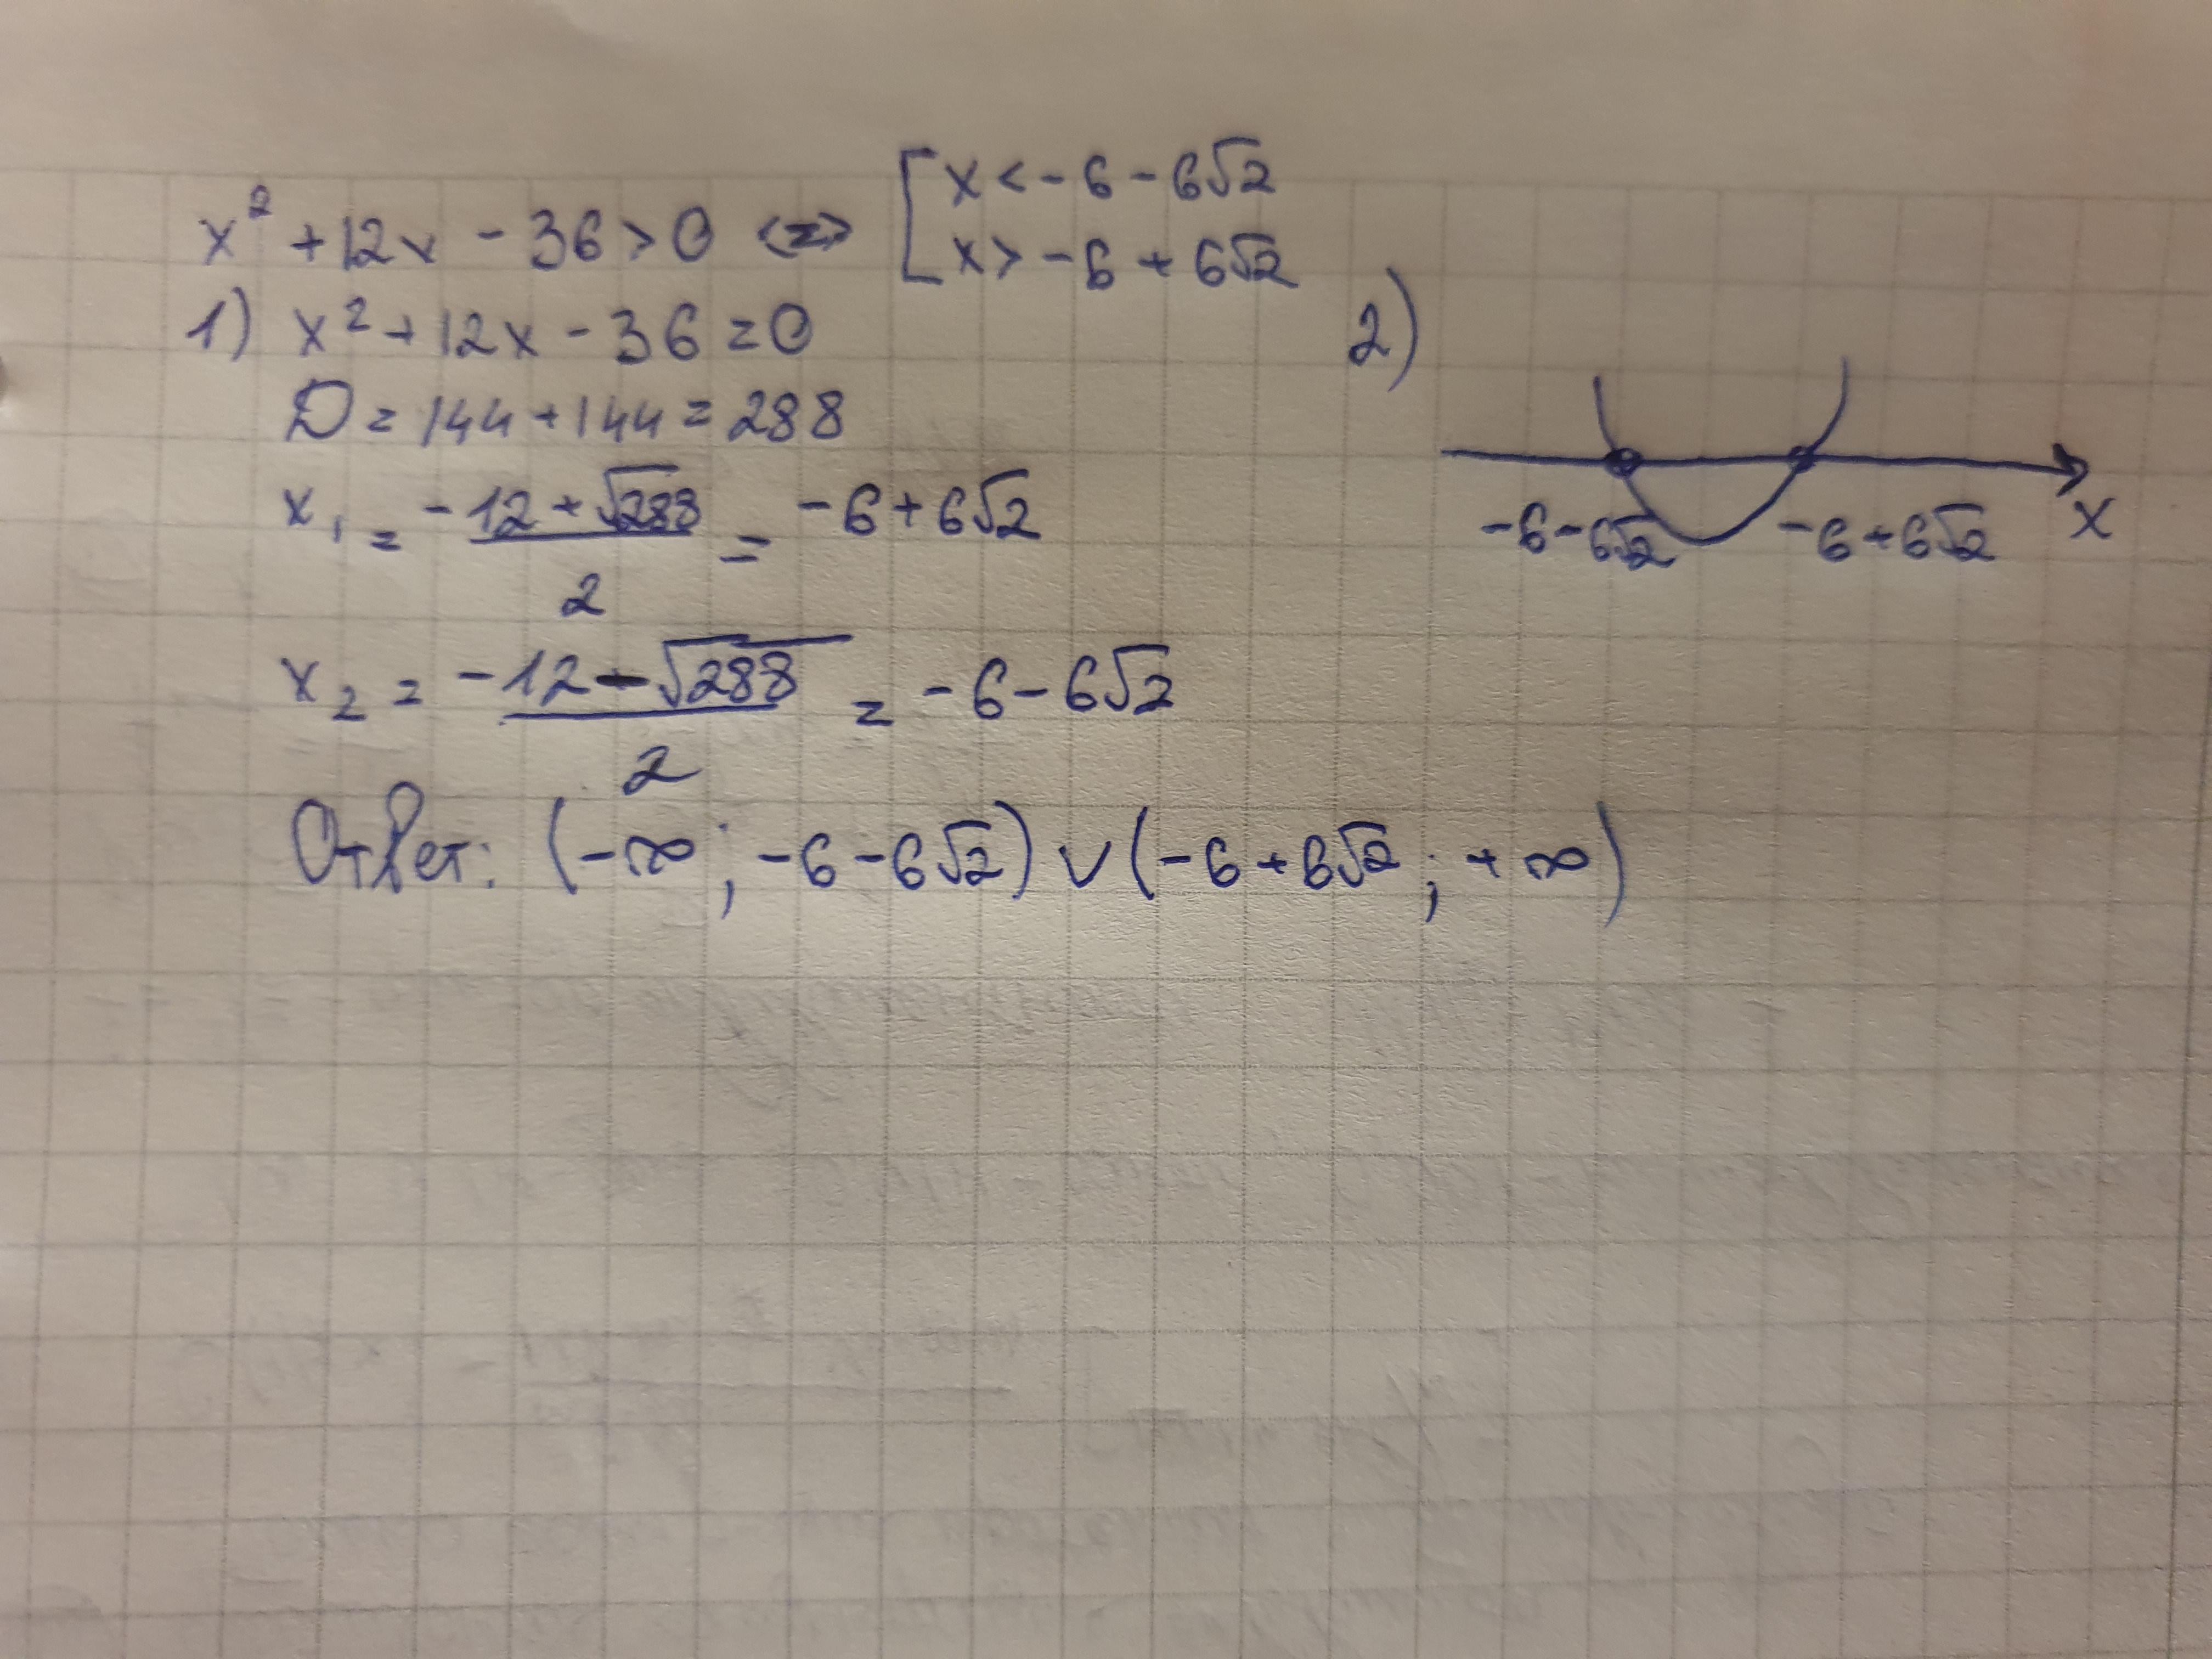 x² + 12x - 36 > 0 <=> [ x < -6 - 6√2
x > -6 + 6√2
1) x² + 12x - 36 = 0
D = 144 + 144 = 288
x₁ = (-12 + √288)/2 = -6 + 6√2
x₂ = (-12 - √288)/2 = -6 - 6√2
2)
-6-6√2 -6+6√2 x
Ответ: (-∞; -6-6√2) ∪ (-6+6√2; +∞)